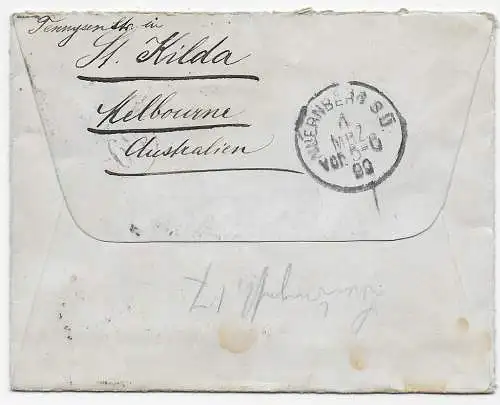 Tennysonstr. in
St. Kilda
Melbourne
Australien
NUERNBERG S.Ü.
4
MRZ
Vor. 5-6
99